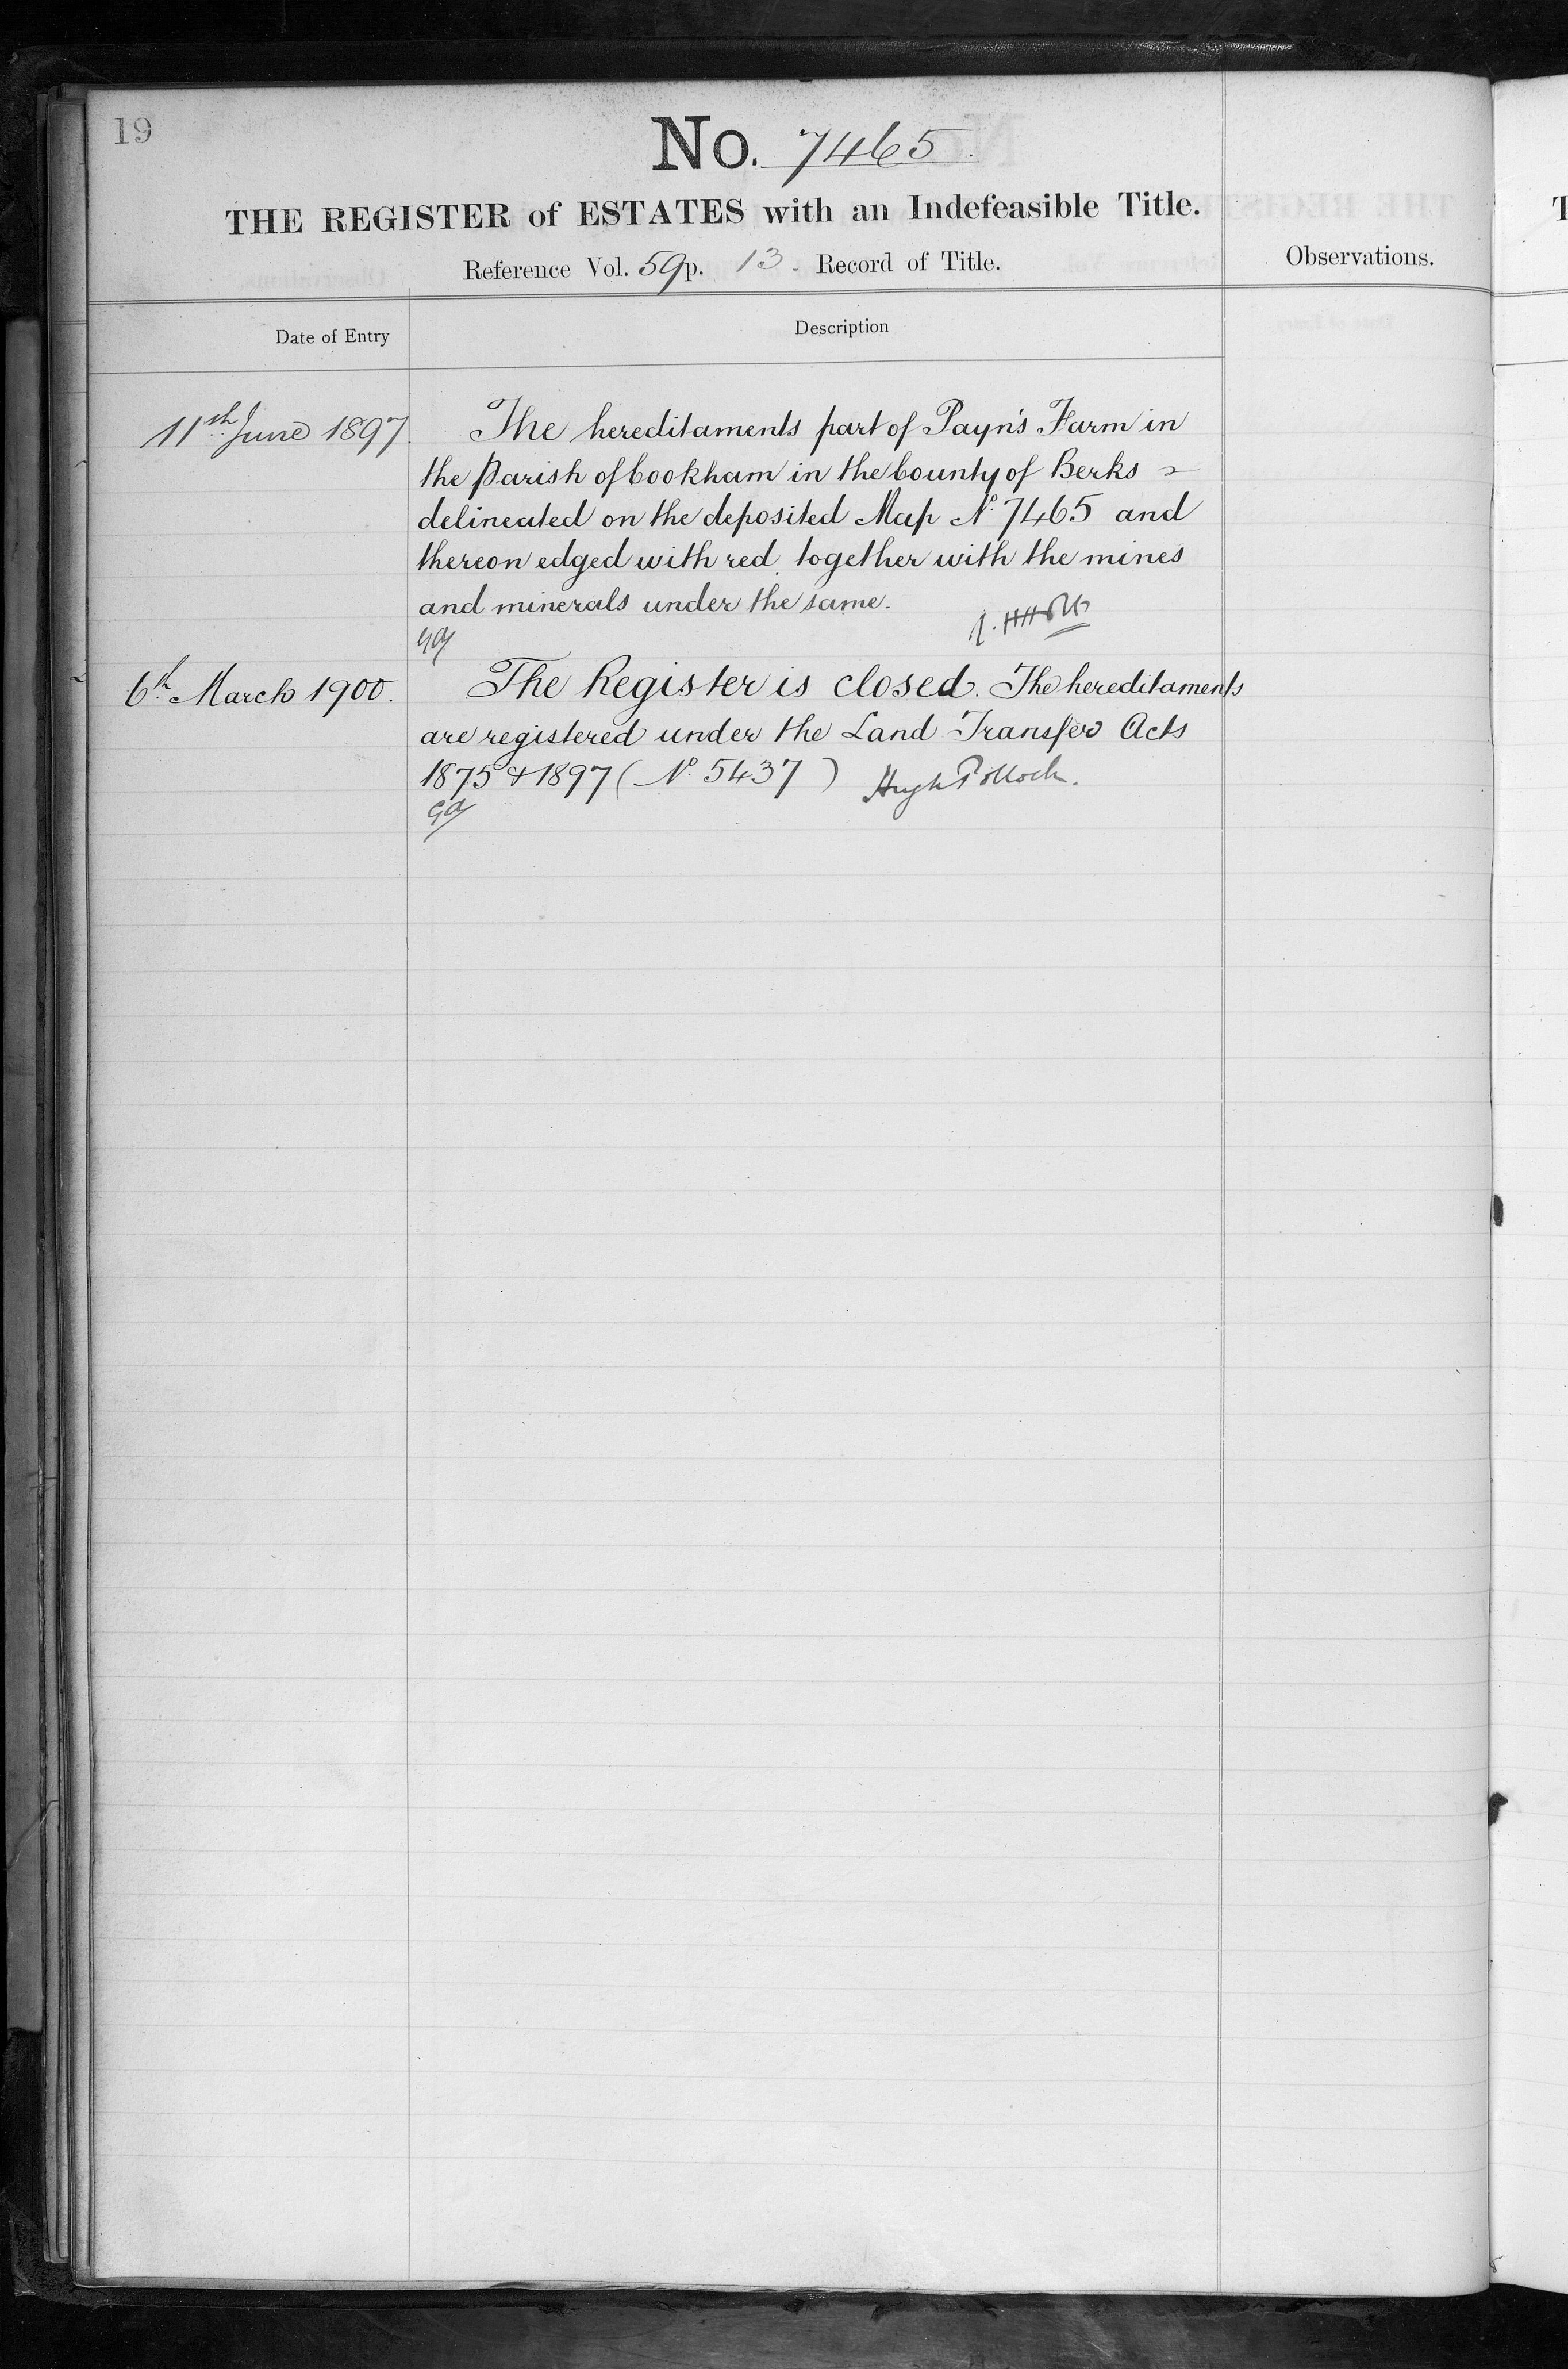 19
No. 7465.
THE REGISTER of ESTATES with an Indefeasible Title.
Reference Vol. 59 p. 13. Record of Title.
Observations.
Date of Entry
Description
11th June 1897.
The hereditaments part of Payn's Farm in
the Parish of Cookham in the County of Berks
delineated on the deposited Map No. 7465 and
thereon edged with red, together with the mines
and minerals under the same.
6th March 1900.
The Register is closed. The hereditaments
are registered under the Land Transfer Acts
1875 & 1897 (No. 5437) Hugh Pollock.